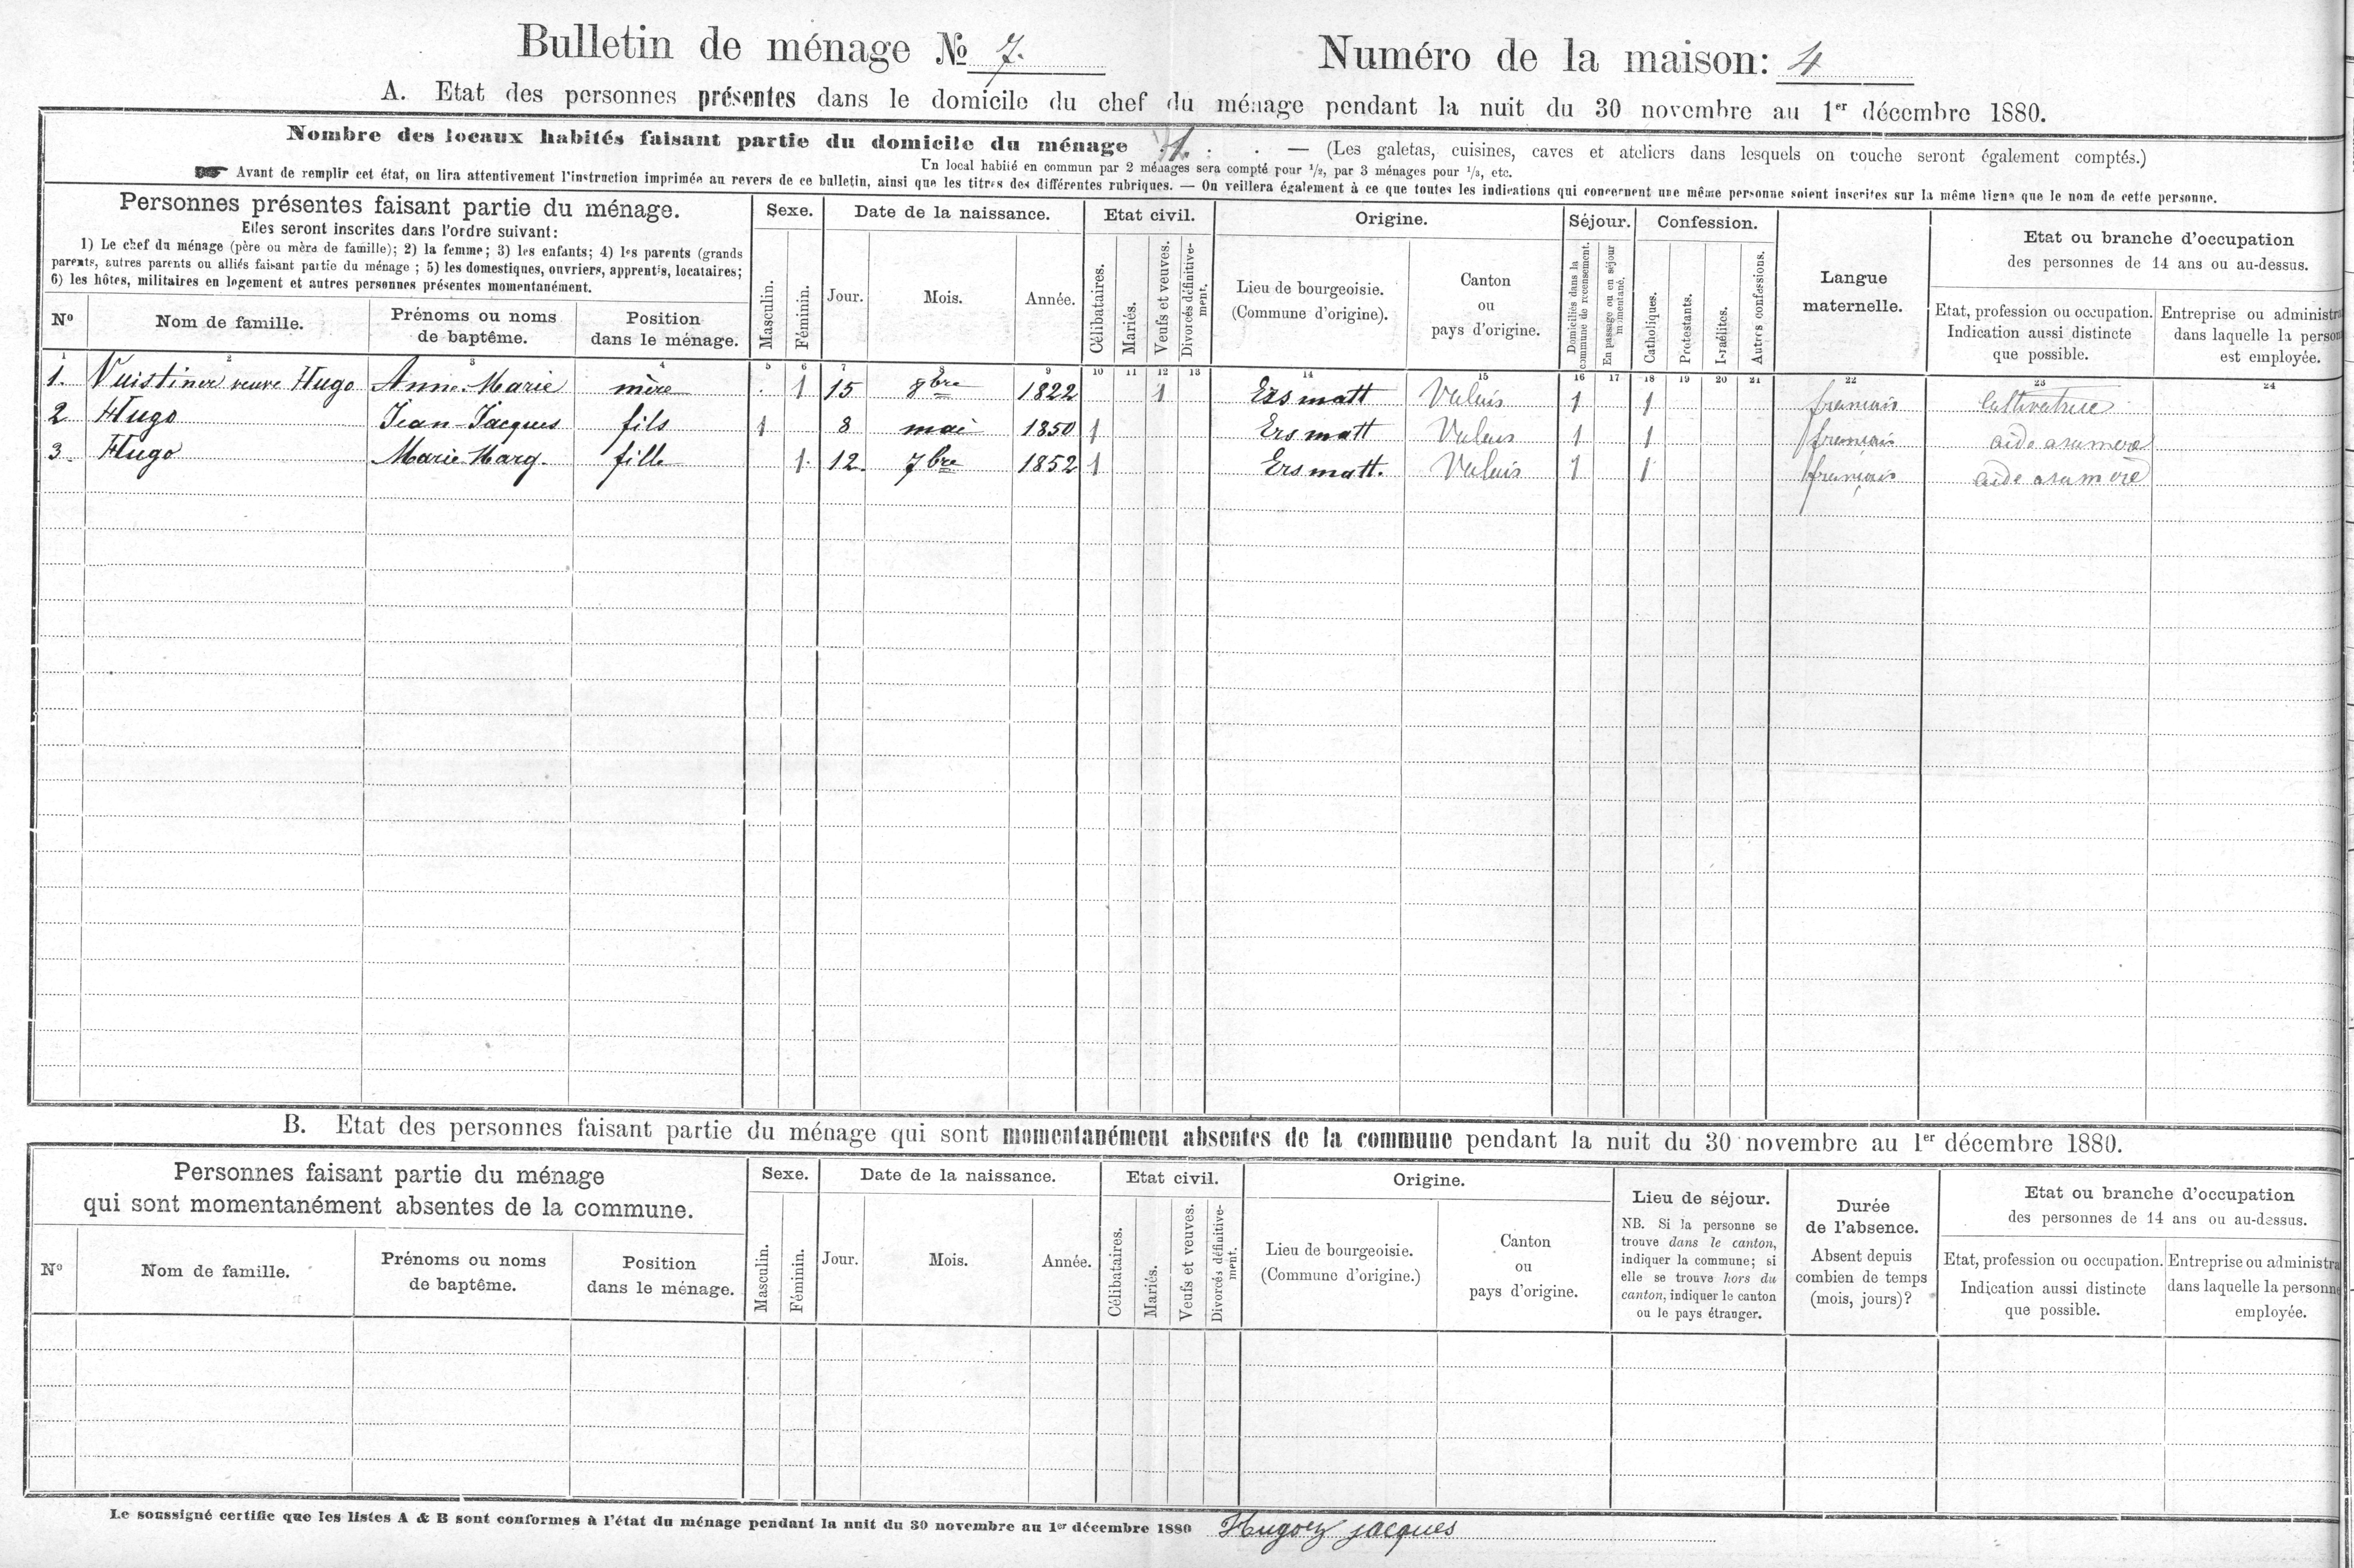 Bulletin de ménage № 7. Numéro de la maison: 4
A. Etat des personnes présentes dans le domicile du chef du ménage pendant la nuit du 30 novembre au 1er décembre 1880.
Nombre des locaux habités faisant partie du domicile du ménage 1. . . — (Les galetas, cuisines, caves et ateliers dans lesquels on couche seront également comptés.)
Un local habité en commun par 2 ménages sera compté pour 1/2, par 3 ménages pour 1/3, etc.
☛ Avant de remplir cet état, on lira attentivement l'instruction imprimée au revers de ce bulletin, ainsi que les titres des différentes rubriques. — On veillera également à ce que toutes les indications qui concernent une même personne soient inscrites sur la même ligne que le nom de cette personne.
Personnes présentes faisant partie du ménage.
Elles seront inscrites dans l'ordre suivant:
1) Le chef du ménage (père ou mère de famille); 2) la femme; 3) les enfants; 4) les parents (grands
parents, autres parents ou alliés faisant partie du ménage ; 5) les domestiques, ouvriers, apprentis, locataires;
6) les hôtes, militaires en logement et autres personnes présentes momentanément.
Nº
Nom de famille.
Prénoms ou noms
de baptême.
Position
dans le ménage.
Sexe.
Masculin.
Féminin.
Date de la naissance.
Jour.
Mois.
Année.
Etat civil.
Célibataires.
Mariés.
Veufs et veuves.
Divorcés définitive-
ment.
Origine.
Lieu de bourgeoisie.
(Commune d'origine).
Canton
ou
pays d'origine.
Séjour.
Domiciliés dans la
commune de recensement.
En passage ou en séjour
momentané,
Confession.
Catholiques.
Protestants.
Israélites.
Autres confessions.
Langue
maternelle.
Etat ou branche d'occupation
des personnes de 14 ans ou au-dessus.
Etat, profession ou occupation.
Indication aussi distincte
que possible.
Entreprise ou administra
dans laquelle la person
est employée.
1 2 3 4 5 6 7 8 9 10 11 12 13 14 15 16 17 18 19 20 21 22 23 24
1. Vuistiner veuve Hugo Anne-Marie mère . 1 15 8bre 1822 1 Ersmatt Valais 1 1 français Cultivatrice
2 Hugo Jean-Jacques fils 1 8 mai 1850 1 Ersmatt Valais 1 1 français aide a sa mere
3. Hugo Marie Marg. fille 1. 12. 7bre 1852 1 Ersmatt. Valais 1 1 français aide a sa mere
B. Etat des personnes faisant partie du ménage qui sont momentanément absentes de la commune pendant la nuit du 30 novembre au 1er décembre 1880.
Personnes faisant partie du ménage
qui sont momentanément absentes de la commune.
Nº
Nom de famille.
Prénoms ou noms
de baptême.
Position
dans le ménage.
Sexe.
Masculin.
Féminin.
Date de la naissance.
Jour.
Mois.
Année.
Etat civil.
Célibataires.
Mariés.
Veufs et veuves.
Divorcés définitive-
ment.
Origine.
Lieu de bourgeoisie.
(Commune d'origine.)
Canton
ou
pays d'origine.
Lieu de séjour.
NB. Si la personne se
trouve dans le canton,
indiquer la commune; si
elle se trouve hors du
canton, indiquer le canton
ou le pays étranger.
Durée
de l'absence.
Absent depuis
combien de temps
(mois, jours)?
Etat ou branche d'occupation
des personnes de 14 ans ou au-dessus.
Etat, profession ou occupation.
Indication aussi distincte
que possible.
Entreprise ou administra
dans laquelle la personne
employée.
Le soussigné certifie que les listes A & B sont conformes à l'état du ménage pendant la nuit du 30 novembre au 1er décembre 1880 Hugoz jacques